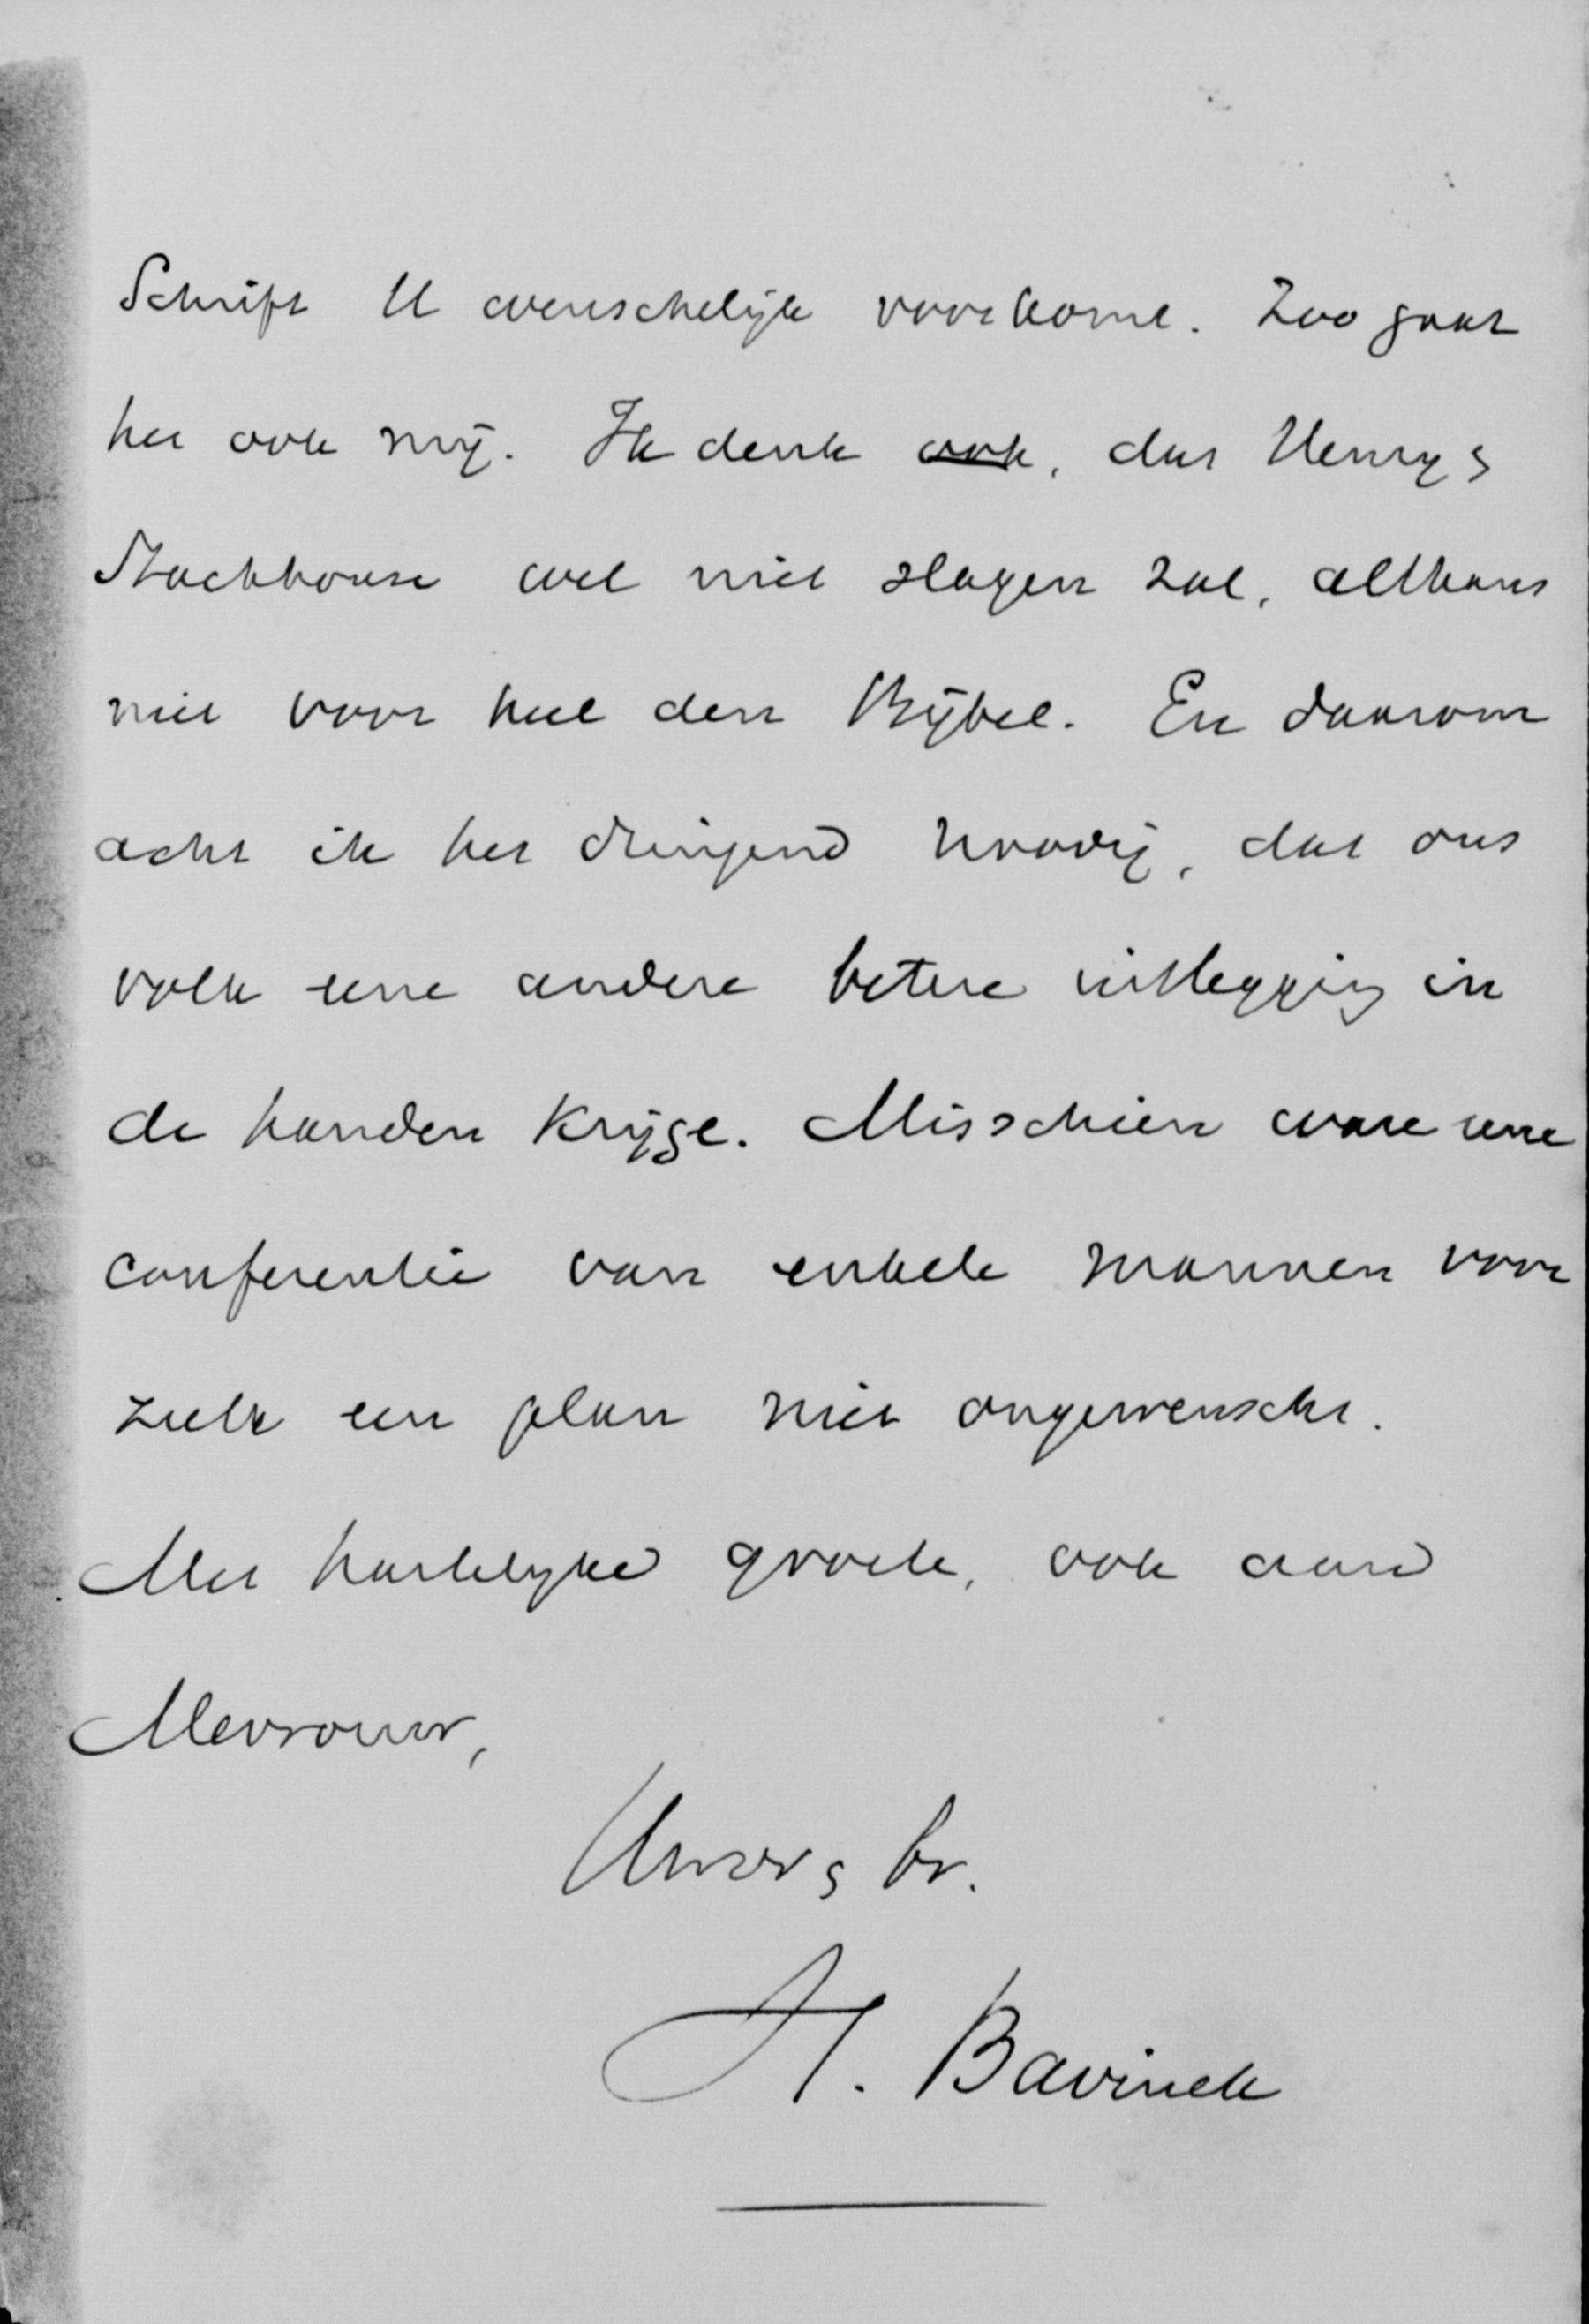 Schrift U wenschelijk voorkomt. Zoo gaat
het ook mij. Ik denk ook, dat Henry &
Stackhouse wel niet slagen zal, althans
niet voor heel den Bijbel. En daarom
acht ik het dringend noodig, dat ons
volk eene andere betere uitlegging in
de handen krijge. Misschien ware eene
conferentie van enkele mannen voor
zulk een plan niet ongewenscht.
Met hartelijke groete, ook aan
Mevrouw,
Uw br.
H. Bavinck